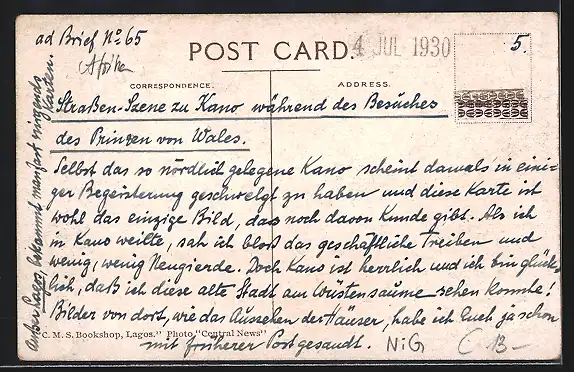 ad Brief No 65
Afrika
POST CARD.
4 JUL 1930
5.
CORRESPONDENCE.
ADDRESS.
Straßen-Szene zu Kano während des Besuches
des Prinzen von Wales.
Selbst das so nördlich gelegene Kano scheint damals in eini-
ger Begeisterung geschwelgt zu haben und diese Karte ist
wohl das einzige Bild, das noch davon Kunde gibt. Als ich
in Kano weilte, sah ich bloß das geschäftliche Treiben und
wenig, wenig Neugierde. Doch Kano ist herrlich und ich bin glück-
lich, daß ich diese alte Stadt am Wüstensaume sehen konnte!
Bilder von dort, wie das Aussehen der Häuser, habe ich Euch ja schon
mit früherer Post gesandt.
Außer Lagos, bekommt man fast nirgends
Karten.
C. M. S. Bookshop, Lagos." Photo "Central News"
NiG
13-